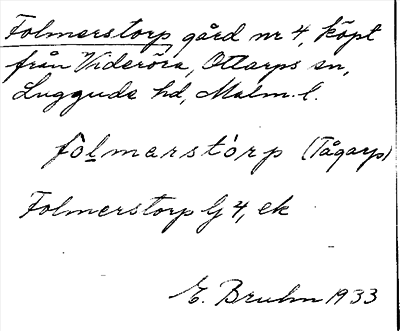 Folmerstorp gård nr 4, köpt
från Videröra, Ottarps sn,
Luggude hd, Malm. l.
fòlmarstòrp (Tågarp)
Folmerstorp lj 4, ek
E. Bruhn 1933